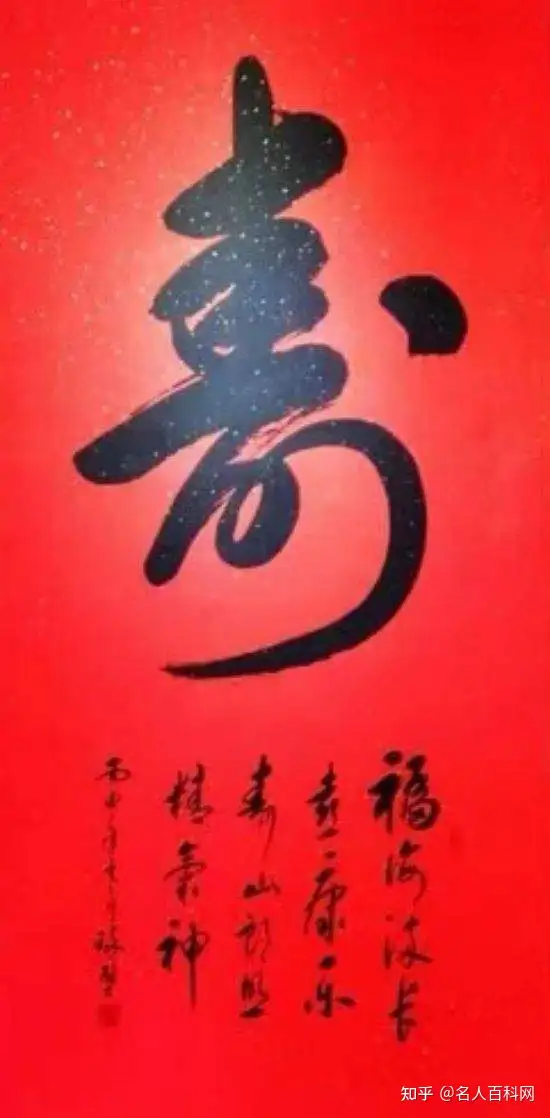 寿
福海波长
意康乐
寿山朗照
精气神
丙申年
知乎 @名人百科网